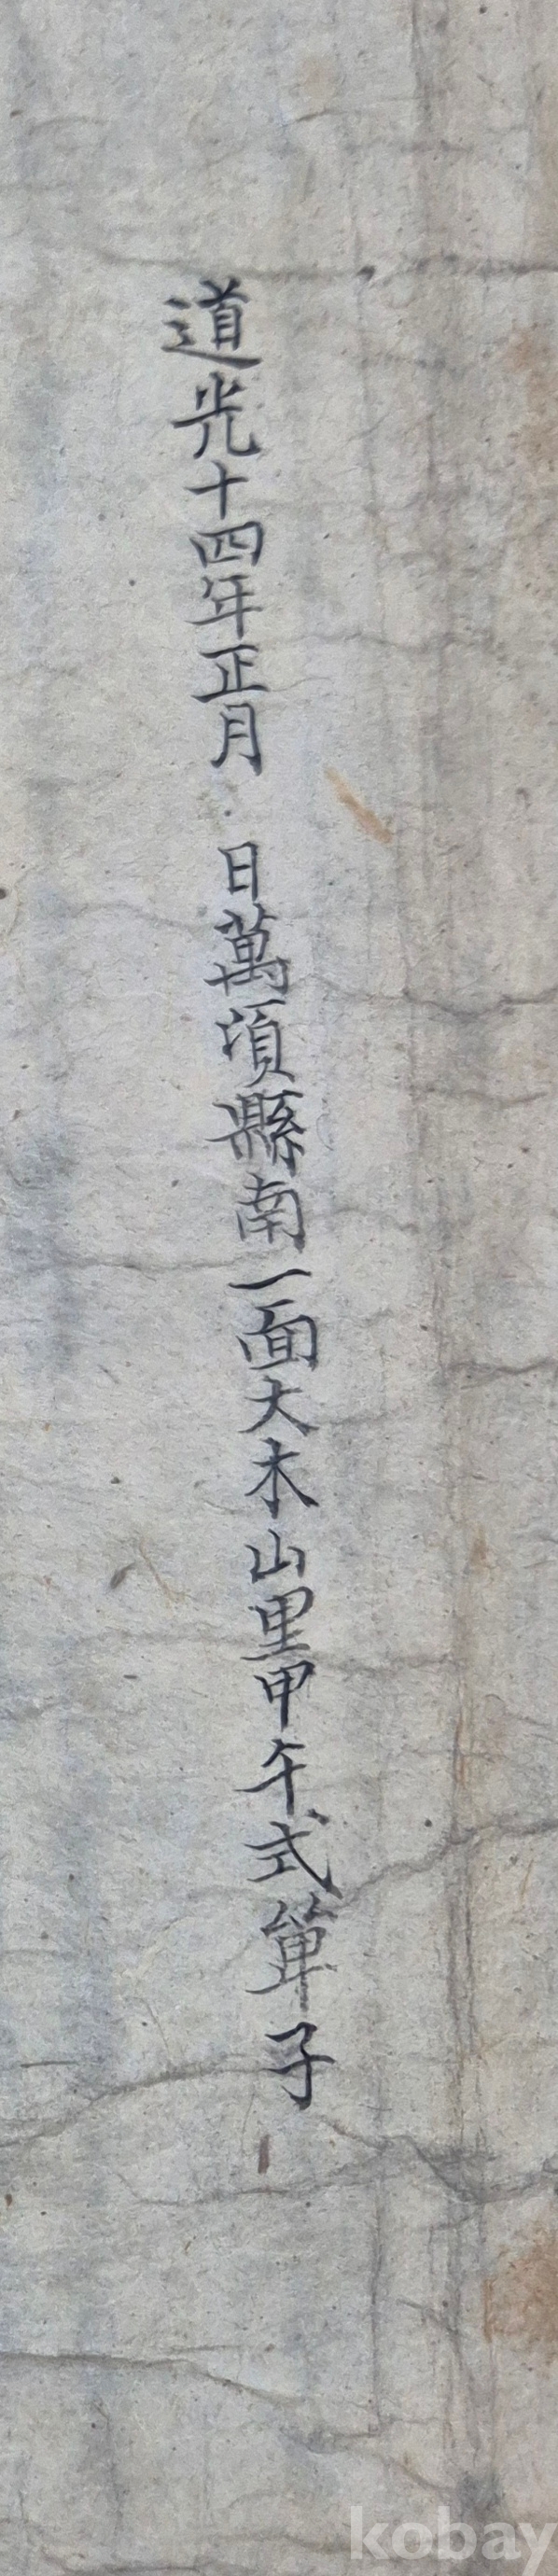 道光十四年正月 日萬頃縣南一面大木山里甲午式單子
kobay